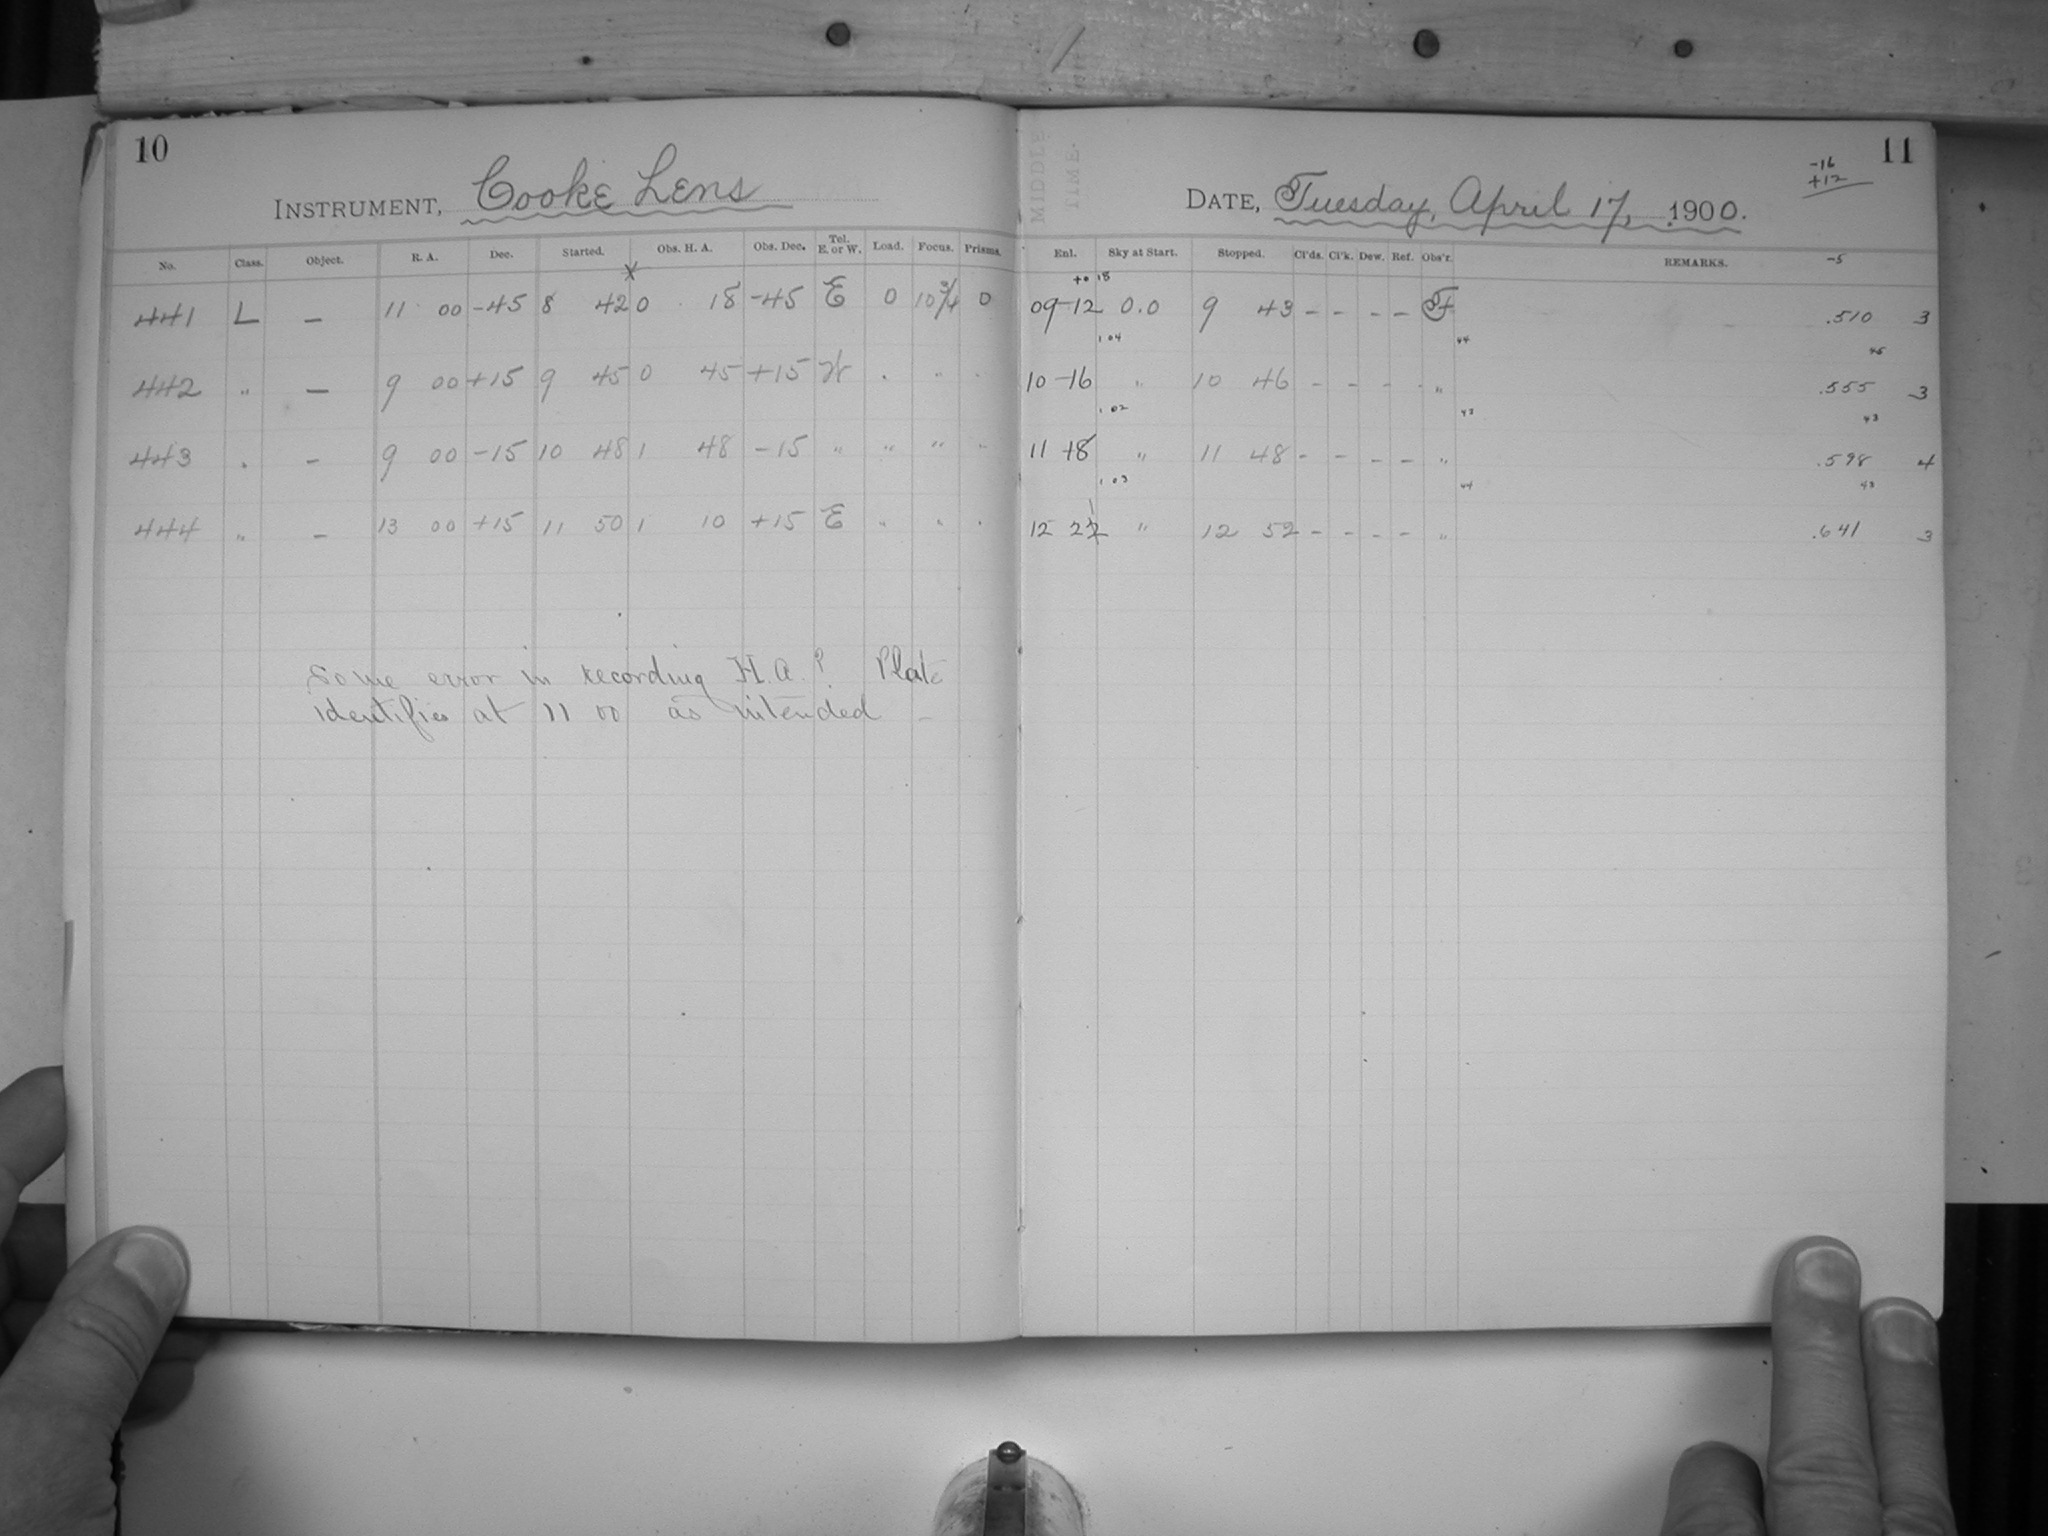 10
INSTRUMENT, Cooke Lens
No. Class. Object. R. A. Dec. Started. Obs. H. A. Obs. Dec. Tel. E. or W. Load. Focus. Prisms.
X
441 L — 11 00 -45 8 42 0 18 -45 E 0 10 3/4 0
442 " — 9 00 +15 9 45 0 45 +15 W . " "
443 . — 9 00 -15 10 48 1 48 -15 " " " "
444 " — 13 00 +15 11 50 1 10 +15 E " " .
Some error in recording H. A.? Plate
identifies at 11 00 as intended —
11
-16
+12
MIDDLE
TIME.
DATE, Tuesday, April 17, 1900.
Enl. Sky at Start. Stopped. Cl'ds. Cl'k. Dew. Ref. Obs'r. REMARKS. -5
+0 18
09-12 0.0 9 43 - - - - F .510 3
1 04 44 45
10 -16 " 10 46 - - - - " .555 3
1 02 43 43
11 +8 " 11 48 - - - - " .598 4
1 03 44 43
12 22 " 12 52 - - - - " .641 3